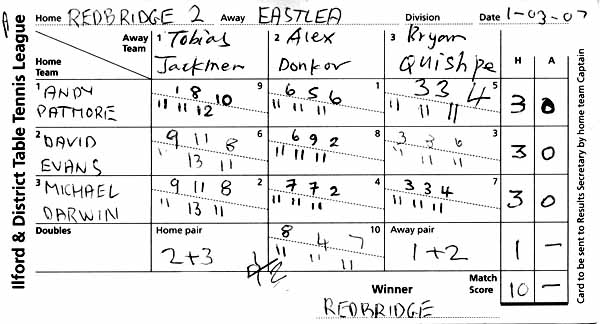 Ilford & District Table Tennis League
Home REDBRIDGE 2 Away EASTLEA Division Date 1-03-07
Away Team 1 Tobias Jackmen 2 Alex Donkor 3 Bryan Quishpe H A
Home Team
1 ANDY PATMORE 9 1 8 10 1 6 5 6 5 3 3 4 3 0
11 11 12 11 11 11 11 11 11
2 DAVID EVANS 6 9 11 8 8 6 9 2 3 3 3 6 3 0
11 13 11 11 11 11 11 11 11
3 MICHAEL DARWIN 2 9 11 8 4 7 7 2 7 3 3 4 3 0
11 13 11 11 11 11 11 11 11
Doubles Home pair 2+3 10 8 4 7 Away pair 1+2 1 –
11 11 11
Winner REDBRIDGE Match Score 10 –
Card to be sent to Results Secretary by home team Captain